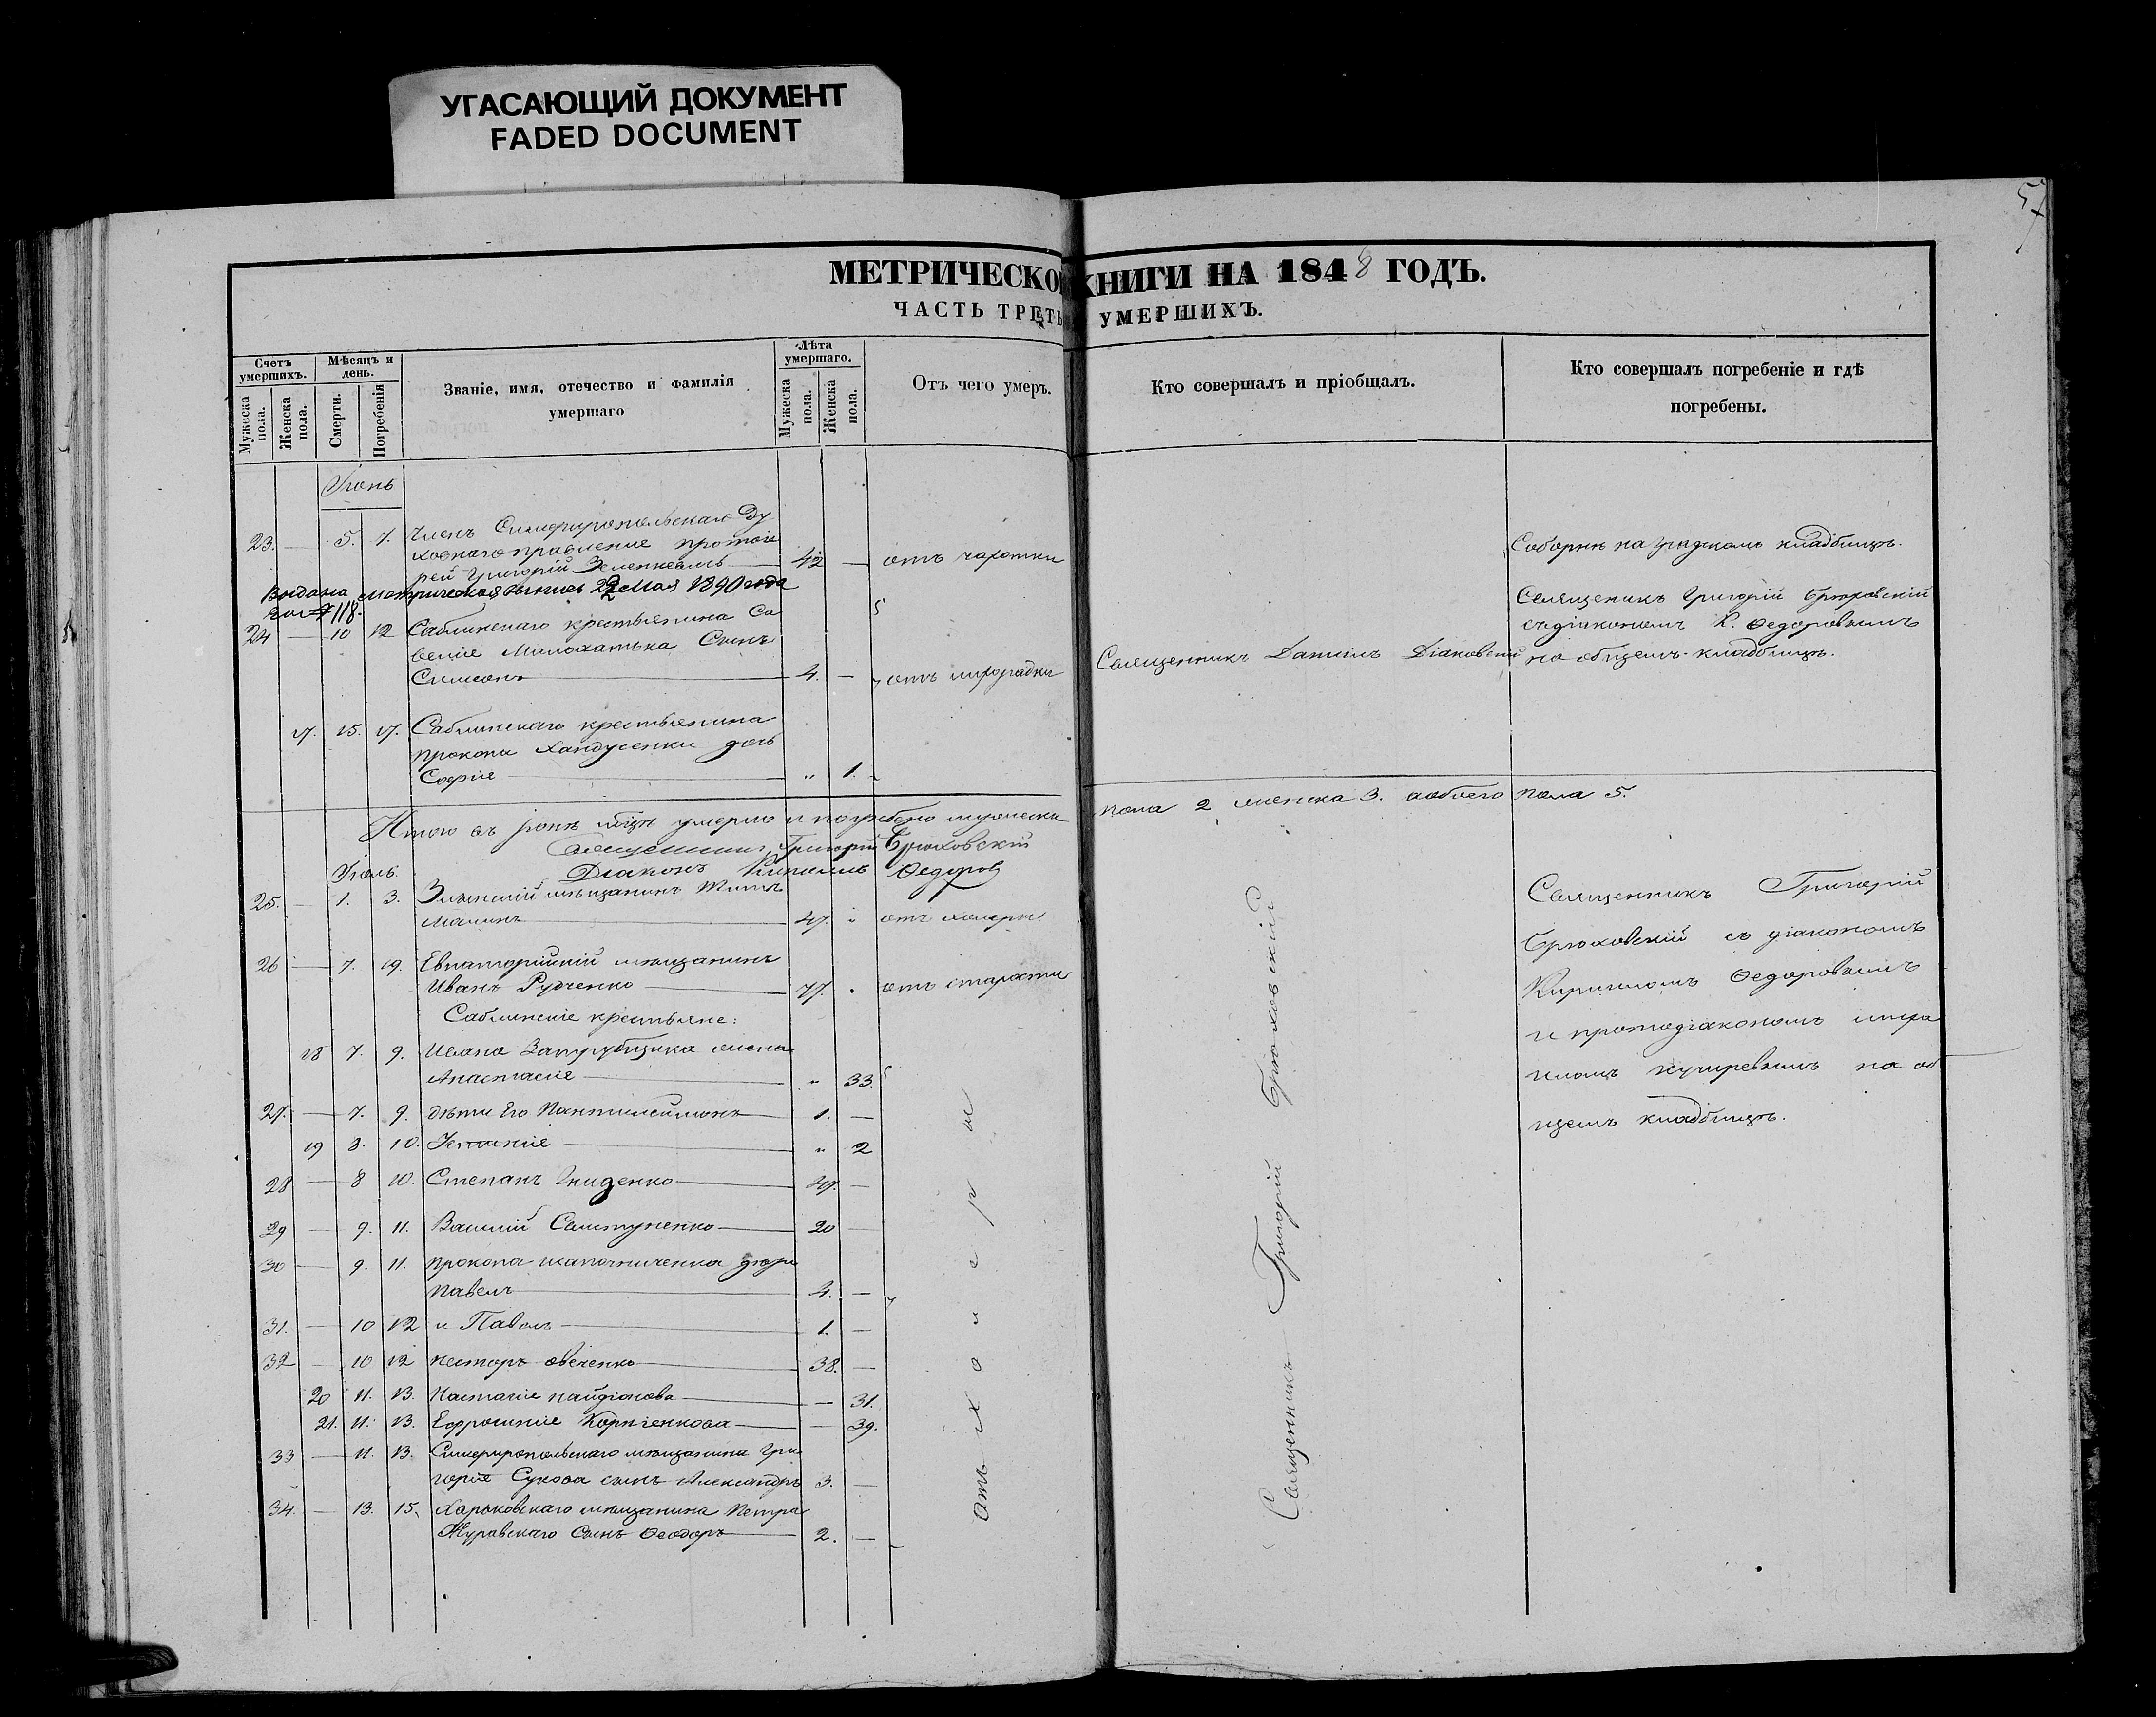 УГАСАЮЩИЙ ДОКУМЕНТ
FADED DOCUMENT
57
МЕТРИЧЕСКО КНИГИ НА 1848 ГОДЪ.
ЧАСТЬ ТРЕТЬ УМЕРШИХЪ.
Счетъ умершихъ.
Мужеска пола.
Женска пола.
Мѣсяцъ и день.
Смерти.
Погребенія
Званіе, имя, отечество и фамилія
умершаго
Лѣта умершаго.
Мужеска пола.
Женска пола.
Отъ чего умеръ.
Кто совершалъ и пріобщалъ.
Кто совершалъ погребеніе и гдѣ
погребены.
Іюнь
23. — 5. 7. Членъ Симферопольскаго Ду
ховнаго правленіе протоіе
рей Григорій 42 — отъ чахотки
Соборнѣ на градкомъ кладбищѣ.
Выдана метрическая выпись 22 Мая 1890 года
за № 118.
24 — 10 12 Саблинскаго крестьянина Са
велія Малохатька Сынъ
Симеонъ 4. — отъ лихорадки
Священникъ Даніилъ Діаковскій
Священикъ Григорій Брюховскій
съ діакономъ К. Федоровымъ
на общемъ кладбищѣ.
17. 15. 17. Саблинскаго крестьянина
Прокопа Хандусенки дочь
Софіе „ 1.
Итого въ Іюнѣ м͠цѣ умерло и погребено мужеска
пола 2 женска 3. а обоего пола 5.
Священникъ Григорій Брюховскій
Діаконъ Кириллъ Федоров
Іюль.
25. — 1. 3. мѣщанинъ
47. „ отъ холеры
26 — 7. 19. Евпаторійскій мѣщанинъ
Иванъ Рудченко 77. „ отъ старости
Саблинскіе крестьяне:
18 7. 9. Ивана жена
Анастасіе „ 33.
27. — 7. 9. дѣти Его Пантилеймонъ 1. —
19 8. 10. „ 2
28 — 8 10. Степанъ Гниденко 47. —
29 — 9. 11. Василій 20 —
30 — 9. 11. Прокопа дѣти
Павелъ 4. —
31. — 10 12 и Павелъ 1. —
32 — 10 12 Несторъ Овеченко 38. —
20 11. 13. Настасіе Найдіонова — 31.
21. 11. 13. Ефросиніе Корніенкова — 39.
33 — 11. 13. Симферопольскаго мѣщанина Гри
горіе Сукова сынъ Александръ 3. —
34. — 13. 15. Харьковскаго мѣщанина Петра
Журавскаго Сынъ Феодоръ 2. —
отъ холеры
Священникъ Григорій Брюховскій
Священникъ Григорій
Брюховскій съ діакономъ
Кирилломъ Федоровымъ
и протодіакономъ Миха
иломъ на об
щемъ кладбищѣ.